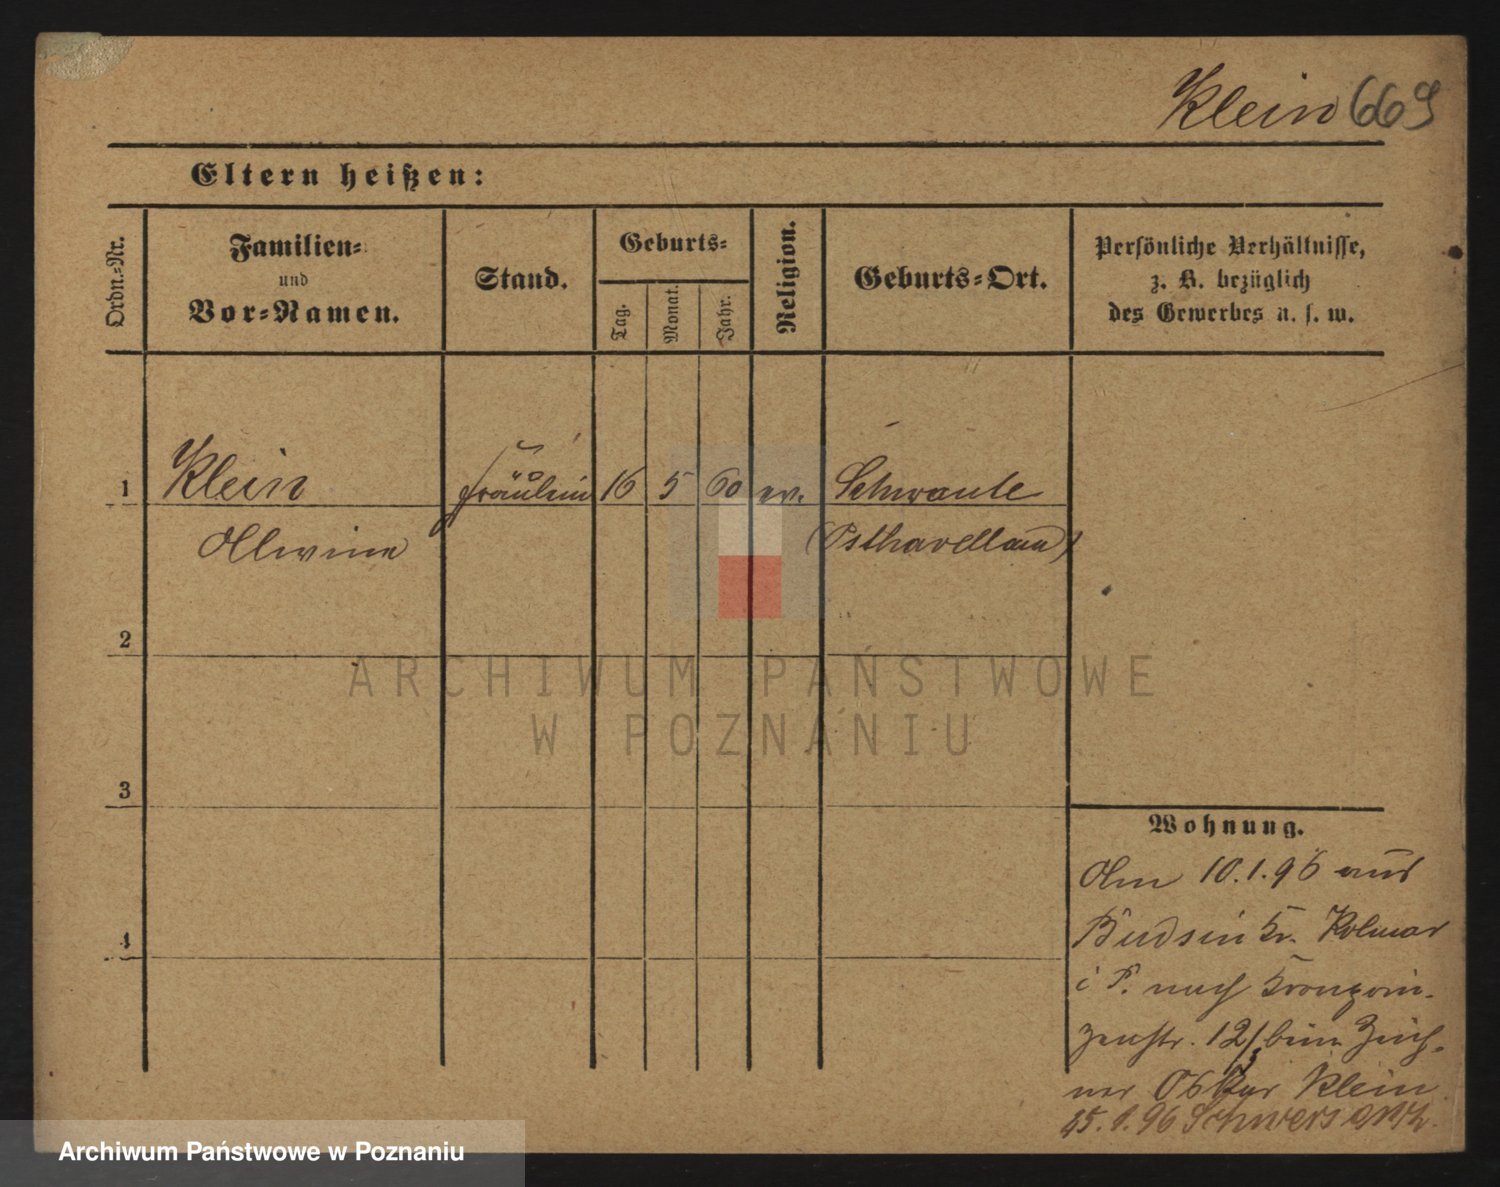 Klein 669
Eltern heißen:
Ordn.-Nr.
Familien-
und
Vor-Namen.
Stand.
Geburts-
Tag.
Monat.
Jahr.
Religion.
Geburts-Ort.
Persönliche Verhältnisse,
z. B. bezüglich
des Gewerbes u. s. w.
1 Klein Fräulein 16 5 60 ev. Schwante
Alwine (Osthavelland)
2
3
4
Wohnung.
Am 10.1.96 aus
Budsin Kr. Kolmar
i P. nach Kronprin-
zenstr. 12/ beim Zeich-
ner Oskar Klein
15.1.96 Schwersenz.
ARCHIWUM PAŃSTWOWE
W POZNANIU
Archiwum Państwowe w Poznaniu